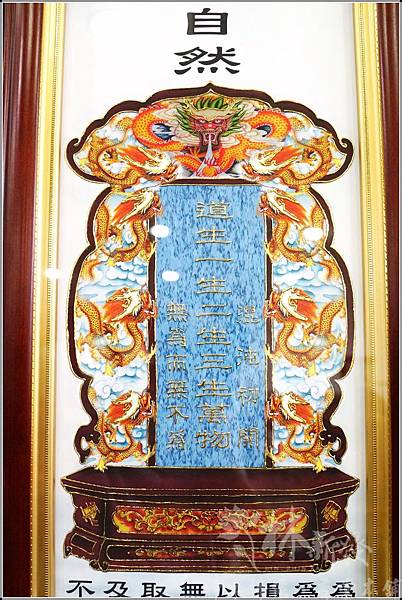 自然
混沌初開
道生一生二生三生萬物
無為而無不為
為為損以無取及不